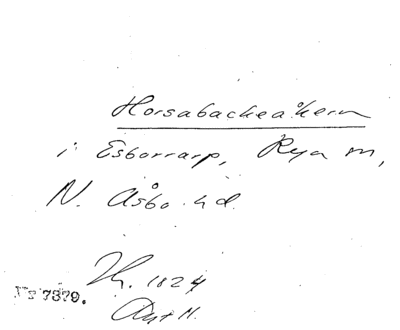 Horsabackeåkern
i Esborrarp, Rya sn,
N. Åsbo hd.
1824
No 7379.